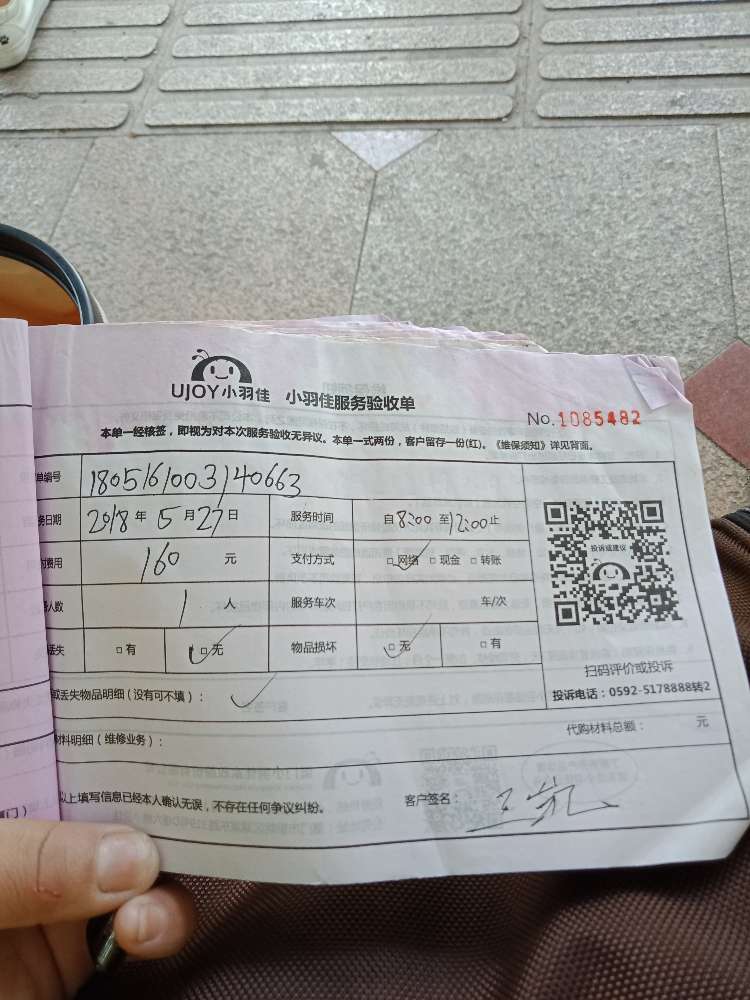 UJOY小羽佳 小羽佳服务验收单
No.1085482
本单一经核签，即视为对本次服务验收无异议。本单一式两份，客户留存一份(红)。《维保须知》详见背面。
单编号 1805161003140663
务日期 2018年 5月27日 服务时间 自8:00至12:00止
付费用 160 元 支付方式 □网络 □现金 □转账
人数 1 人 服务车次 年/次
丢失 □有 □无 物品损坏 □无 □有
投诉或建议
扫码评价或投诉
投诉电话：0592-5178888转2
或丢失物品明细（没有可不填）：
代购材料总额： 元
材料明细（维修业务）：
以上填写信息已经本人确认无误，不存在任何争议纠纷。
客户签名： 王凯
门）